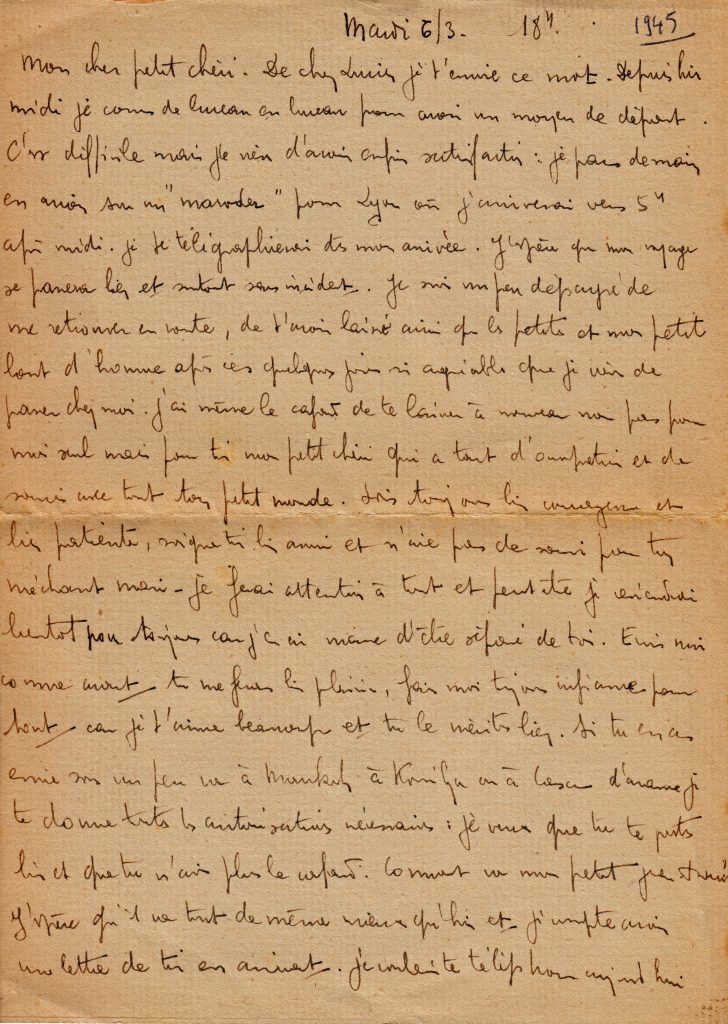 Mardi 6/3. 18h. 1945
Mon cher petit chéri. De chez Lucien je t'envoie ce mot. Depuis hier
midi je cours de bureau en bureau pour avoir un moyen de départ.
C'est difficile mais je viens d'avoir enfin satisfaction : je pars demain
en avion sur un "maroder" pour Lyon où j'arriverai vers 5h
après midi. Je te télégraphierai dès mon arrivée. J'espère que mon voyage
se passera bien et surtout sans incident. Je suis un peu dépaysé de
me retrouver en route, de t'avoir laissé ainsi que les petits et mon petit
bout d'homme après ces quelques jours si agréables que je viens de
passer chez moi. J'ai même le cafard de te laisser à nouveau non pas pour
moi seul mais pour toi mon petit chéri qui a tant d'occupation et de
soucis avec tout ton petit monde. Sois toujours bien courageuse et
bien patiente, soigne toi bien aussi et n'aie pas de souci pour ton
méchant mari - je ferai attention à tout et peut être je reviendrai
bientôt pour toujours car j'en ai marre d'être séparé de toi. Ecris moi
comme avant tu me feras bien plaisir, fais moi toujours confiance pour
tout car je t'aime beaucoup et tu le mérites bien. Si tu en as
envie sors un peu va à à ou à Casa d'avance je
te donne toutes les autorisations nécessaires : je veux que tu te portes
bien et que tu n'aies plus le cafard. Comment va mon petit
J'espère qu'il va tout de même mieux qu'hier et j'compte avoir
une lettre de toi en arrivant. Je voulais te téléphoner aujourd'hui